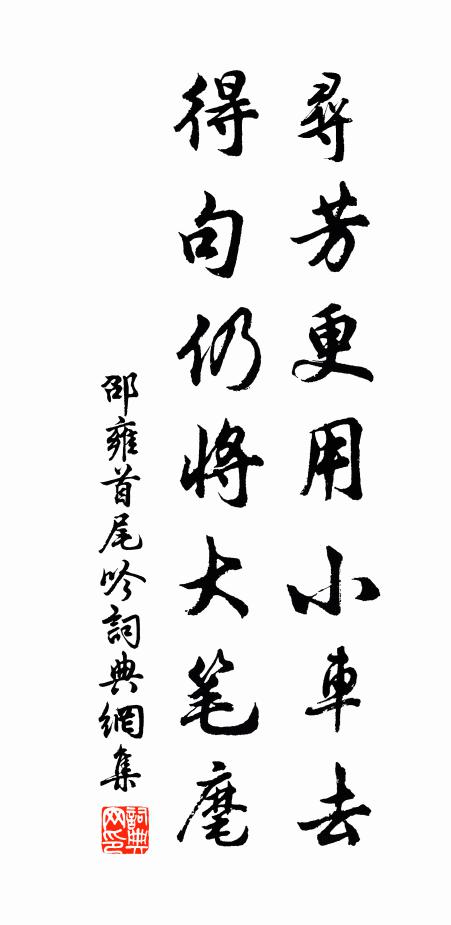 尋芳更用小車去
得句仍將大笔麾
邵雍首尾吟詞典網集
詞典网印